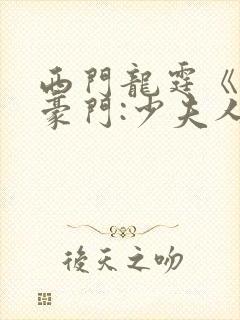 西門龍霆《
豪門:少夫人
後天之吻